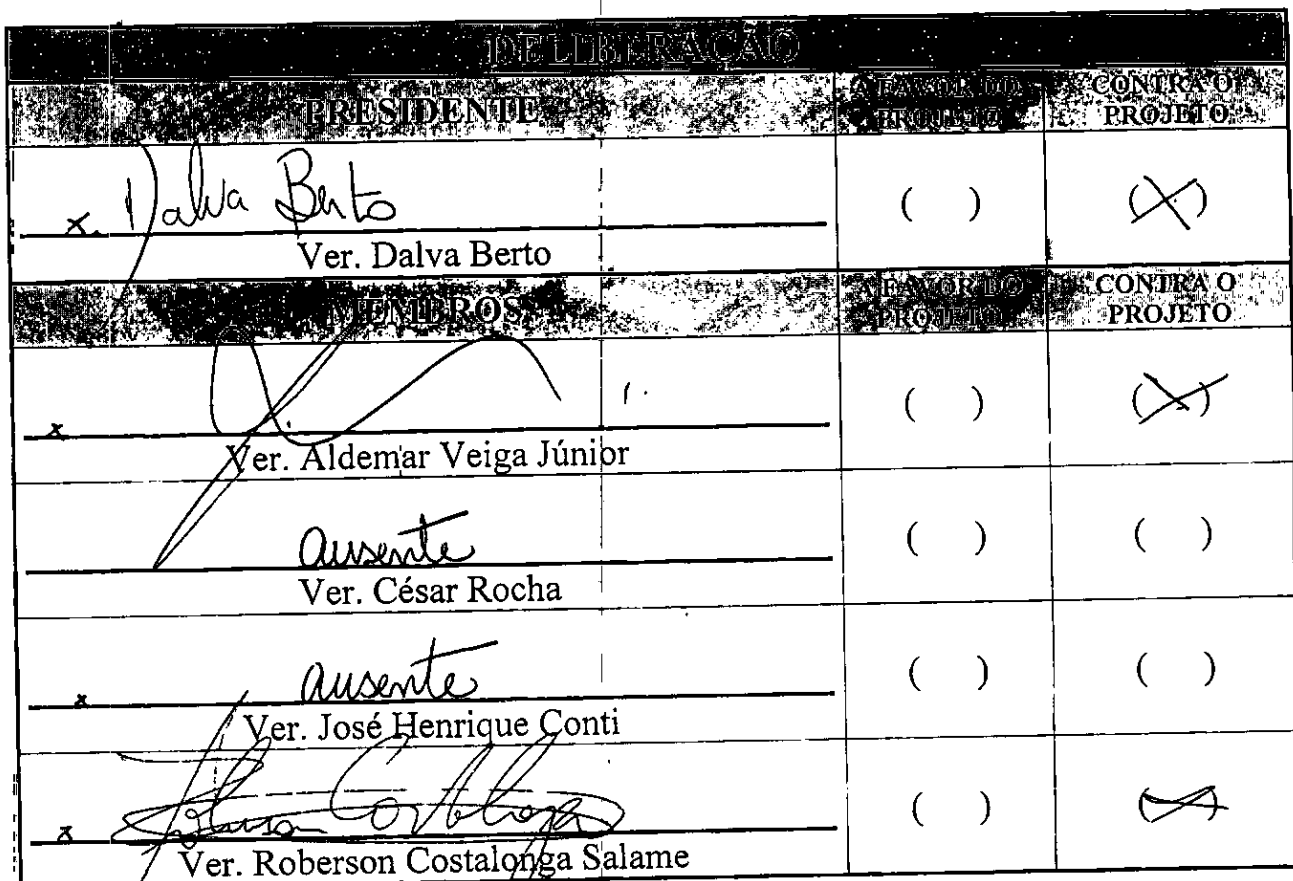 DELIBERAÇÃO
PRESIDENTE
A FAVOR DO PROJETO
CONTRA O PROJETO
x. Dalva Berto
( ) (X)
Ver. Dalva Berto
MEMBROS
A FAVOR DO PROJETO
CONTRA O PROJETO
x
( ) (X)
Ver. Aldemar Veiga Júnior
ausente
( ) ( )
Ver. César Rocha
x ausente
( ) ( )
Ver. José Henrique Conti
x
( ) (X)
Ver. Roberson Costalonga Salame